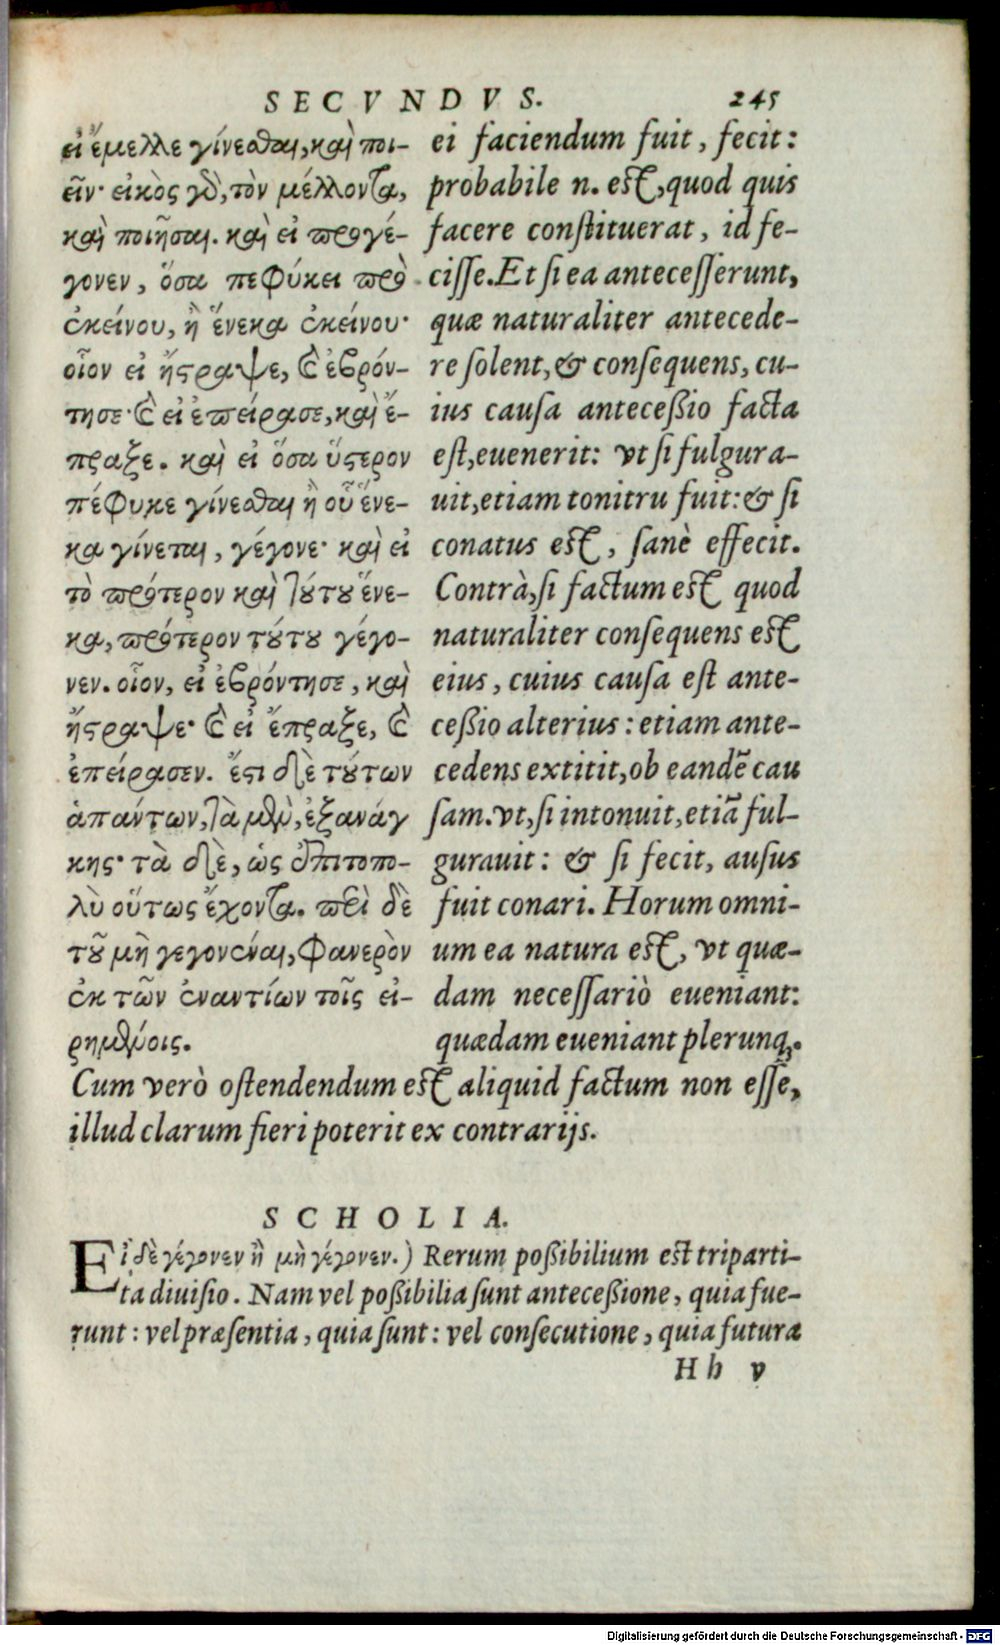 SECVNDVS. 245
εἰ ἔμελλε γίνεσθαι, καὶ ποι-
εῖν· εἰκὸς γὸ, τὸν μέλλοντα,
καὶ ποιῆσαι. καὶ εἰ προγέ-
γονεν, ὅσα πεφύκει πρὸ
ἐκείνου, ἢ ἕνεκα ἐκείνου·
οἷον εἰ ἤστραψε, καὶ ἐβρόν-
τησε· καὶ εἰ ἐπείρασε, καὶ ἔ-
πραξε. καὶ εἰ ὅσα ὕστερον
πέφυκε γίνεσθαι ἢ οὗ ἕνε-
κα γίνεται, γέγονε· καὶ εἰ
τὸ πρότερον καὶ τούτου ἕνε-
κα, πρότερον τούτου γέγο-
νεν. οἷον, εἰ ἐβρόντησε, καὶ
ἤστραψε· καὶ εἰ ἔπραξε, καὶ
ἐπείρασεν. ἔστι δὲ τούτων
ἁπάντων, τὰ μὲν, ἐξανάγ
κης· τὰ δὲ, ὡς ἐπιτοπο-
λὺ οὕτως ἔχοντα. περὶ δὲ
τοῦ μὴ γεγονέναι, φανερὸν
ἐκ τῶν ἐναντίων τοῖς εἰ-
ρημένοις.
ei faciendum fuit, fecit:
probabile n. est, quod quis
facere constituerat, id fe-
cisse. Et si ea antecesserunt,
quæ naturaliter antecede-
re solent, & consequens, cu-
ius causa antecessio facta
est, euenerit: vt si fulgura-
uit, etiam tonitru fuit: & si
conatus est, sanè effecit.
Contrà, si factum est quod
naturaliter consequens est
eius, cuius causa est ante-
cessio alterius: etiam ante-
cedens extitit, ob eandẽ cau
sam. vt, si intonuit, etiã ful-
gurauit: & si fecit, ausus
fuit conari. Horum omni-
um ea natura est, vt quæ-
dam necessariò eueniant:
quædam eueniant plerunq;.
Cum verò ostendendum est aliquid factum non esse,
illud clarum fieri poterit ex contrarijs.
SCHOLIA.
Εἰ δὲ γέγονεν ἢ μὴ γέγονεν.) Rerum possibilium est triparti-
ta diuisio. Nam vel possibilia sunt antecessione, quia fue-
runt: vel præsentia, quia sunt: vel consecutione, quia futura
Hh v
Digitalisierung gefördert durch die Deutsche Forschungsgemeinschaft - DFG